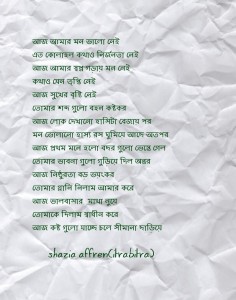 আজ আমার মন ভালো নেই
এত কোলাহল কথাও নির্জনতা নেই
আজ আমার স্বপ্ন গড়ায় মন নেই
কথাও যেন তৃপ্তি নেই
আজ সুখের বৃষ্টি নেই
তোমার শব্দ গুলো বহন কষ্টকর
আজ লোক দেখানো হাসিটা বেজায় পর
মন ভোলানো হাসা রস ঘুমিয়ে আছে অতপর
আজ প্রথম মনে হলো বদর গুলো ভেঙ্গে গেল
তোমার ভাবনা গুলো গুড়িয়ে দিল অন্তর
আজ নিষ্ঠুরতা বড় ভয়ংকর
তোমার গ্লানি নিলাম আমার করে
আজ ভালবাসার মাথা নুয়ে
তোমাকে দিলাম স্বাধীন করে
আজ কষ্ট গুলো যাচ্ছে চলে সীমানা দাড়িয়ে
shazia affren(itrabitra)